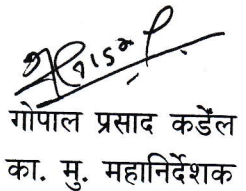 गोपाल प्रसाद कडेँल
का. मु. महानिर्देशक